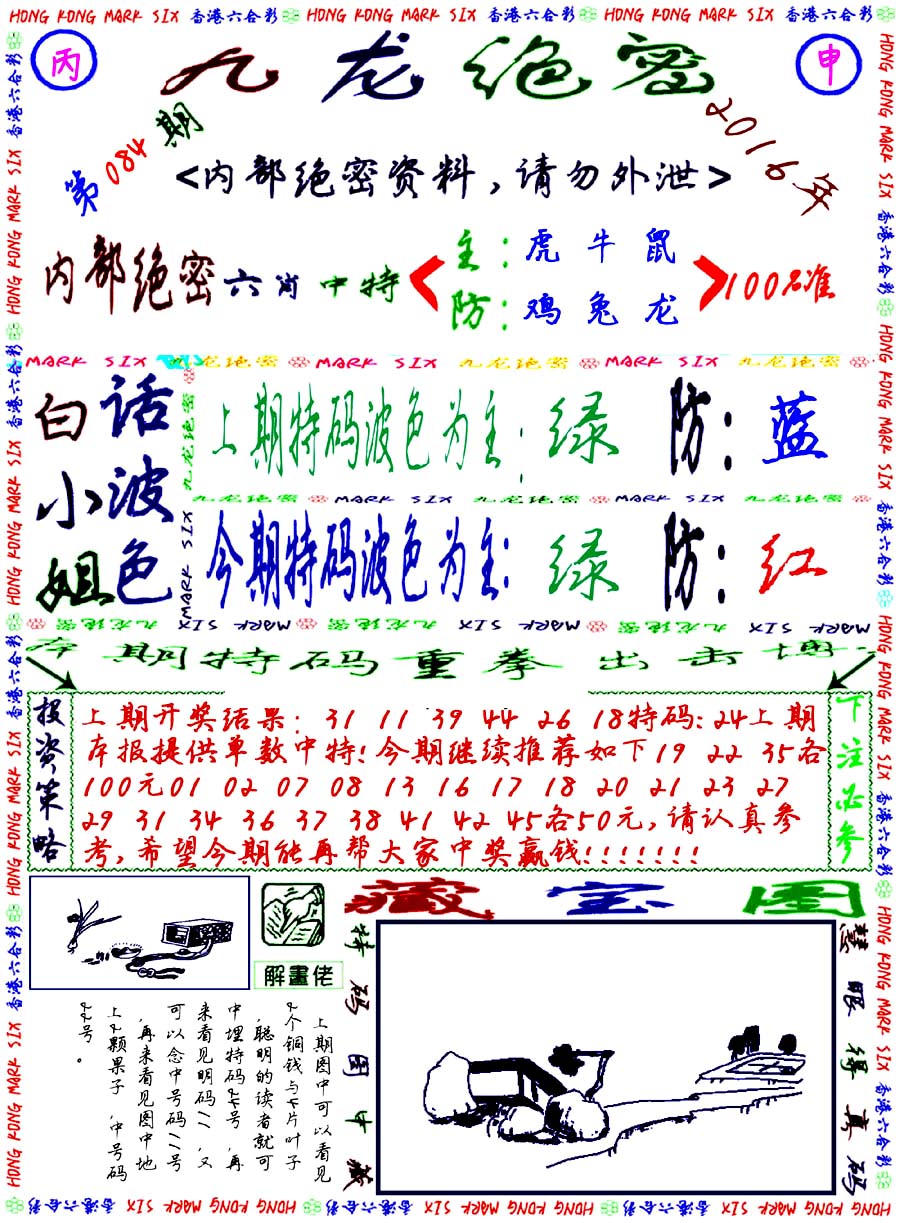 HONG KONG MARK SIX 香港六合彩 HONG KONG MARK SIX 香港六合彩 HONG KONG MARK SIX 香港六合彩
丙
九龙绝密
申
第084期
2016年
<内部绝密资料,请勿外泄>
内部绝密六肖中特
主:虎 牛 鼠
防:鸡 兔 龙
100%准
MARK SIX 九龙绝密 MARK SIX 九龙绝密 MARK SIX 九龙绝密
白话小波姐色
上期特码波色为主:绿 防:蓝
九龙绝密 MARK SIX 九龙绝密 MARK SIX 九龙绝密
今期特码波色为主:绿 防:红
MARK SIX 九龙绝密 MARK SIX 九龙绝密 MARK SIX 九龙绝密
本期特码重拳出击博
投资策略
上期开奖结果:31 11 39 44 26 18特码:24上期
本报提供单数中特!今期继续推荐如下19 22 35各
100元01 02 07 08 13 16 17 18 20 21 23 27
29 31 34 36 37 38 41 42 45各50元,请认真参
考,希望今期能再帮大家中奖赢钱!!!!!!!
下注必参
藏宝图
解畫佬
特码图中藏
慧眼得真码
上期图中可以看见
2个铜钱与4片叶子
,聪明的读者就可
中埋特码24号,再
来看见明码11,又
可以念中号码11号
,再来看见图中地
上2颗果子,中号码
22号。
HONG KONG MARK SIX 香港六合彩 HONG KONG MARK SIX 香港六合彩 HONG KONG MARK SIX 香港六合彩